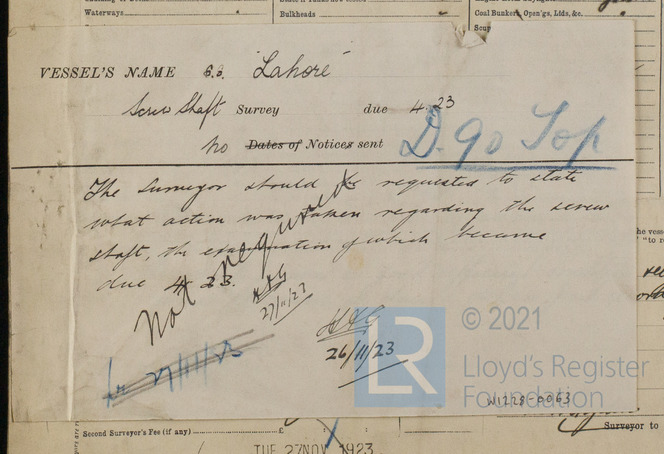 Waterways
Bulkheads
Coal Bunkers, Open'gs, Lids, &c.
VESSEL'S NAME s.s. 'Lahore'
Screw Shaft Survey due 4.23
No Dates of Notices sent
D. 90 Top
The Surveyor should be requested to state
what action was taken regarding the screw
shaft, the examination of which became
due 4.23.
Not required
27/11/23
26/11/23
27/11/23
LR
© 2021
Lloyd's Register
Foundation
W1228-0063
Second Surveyor's Fee (if any) £
Surveyor to
TUE 27 NOV 1923